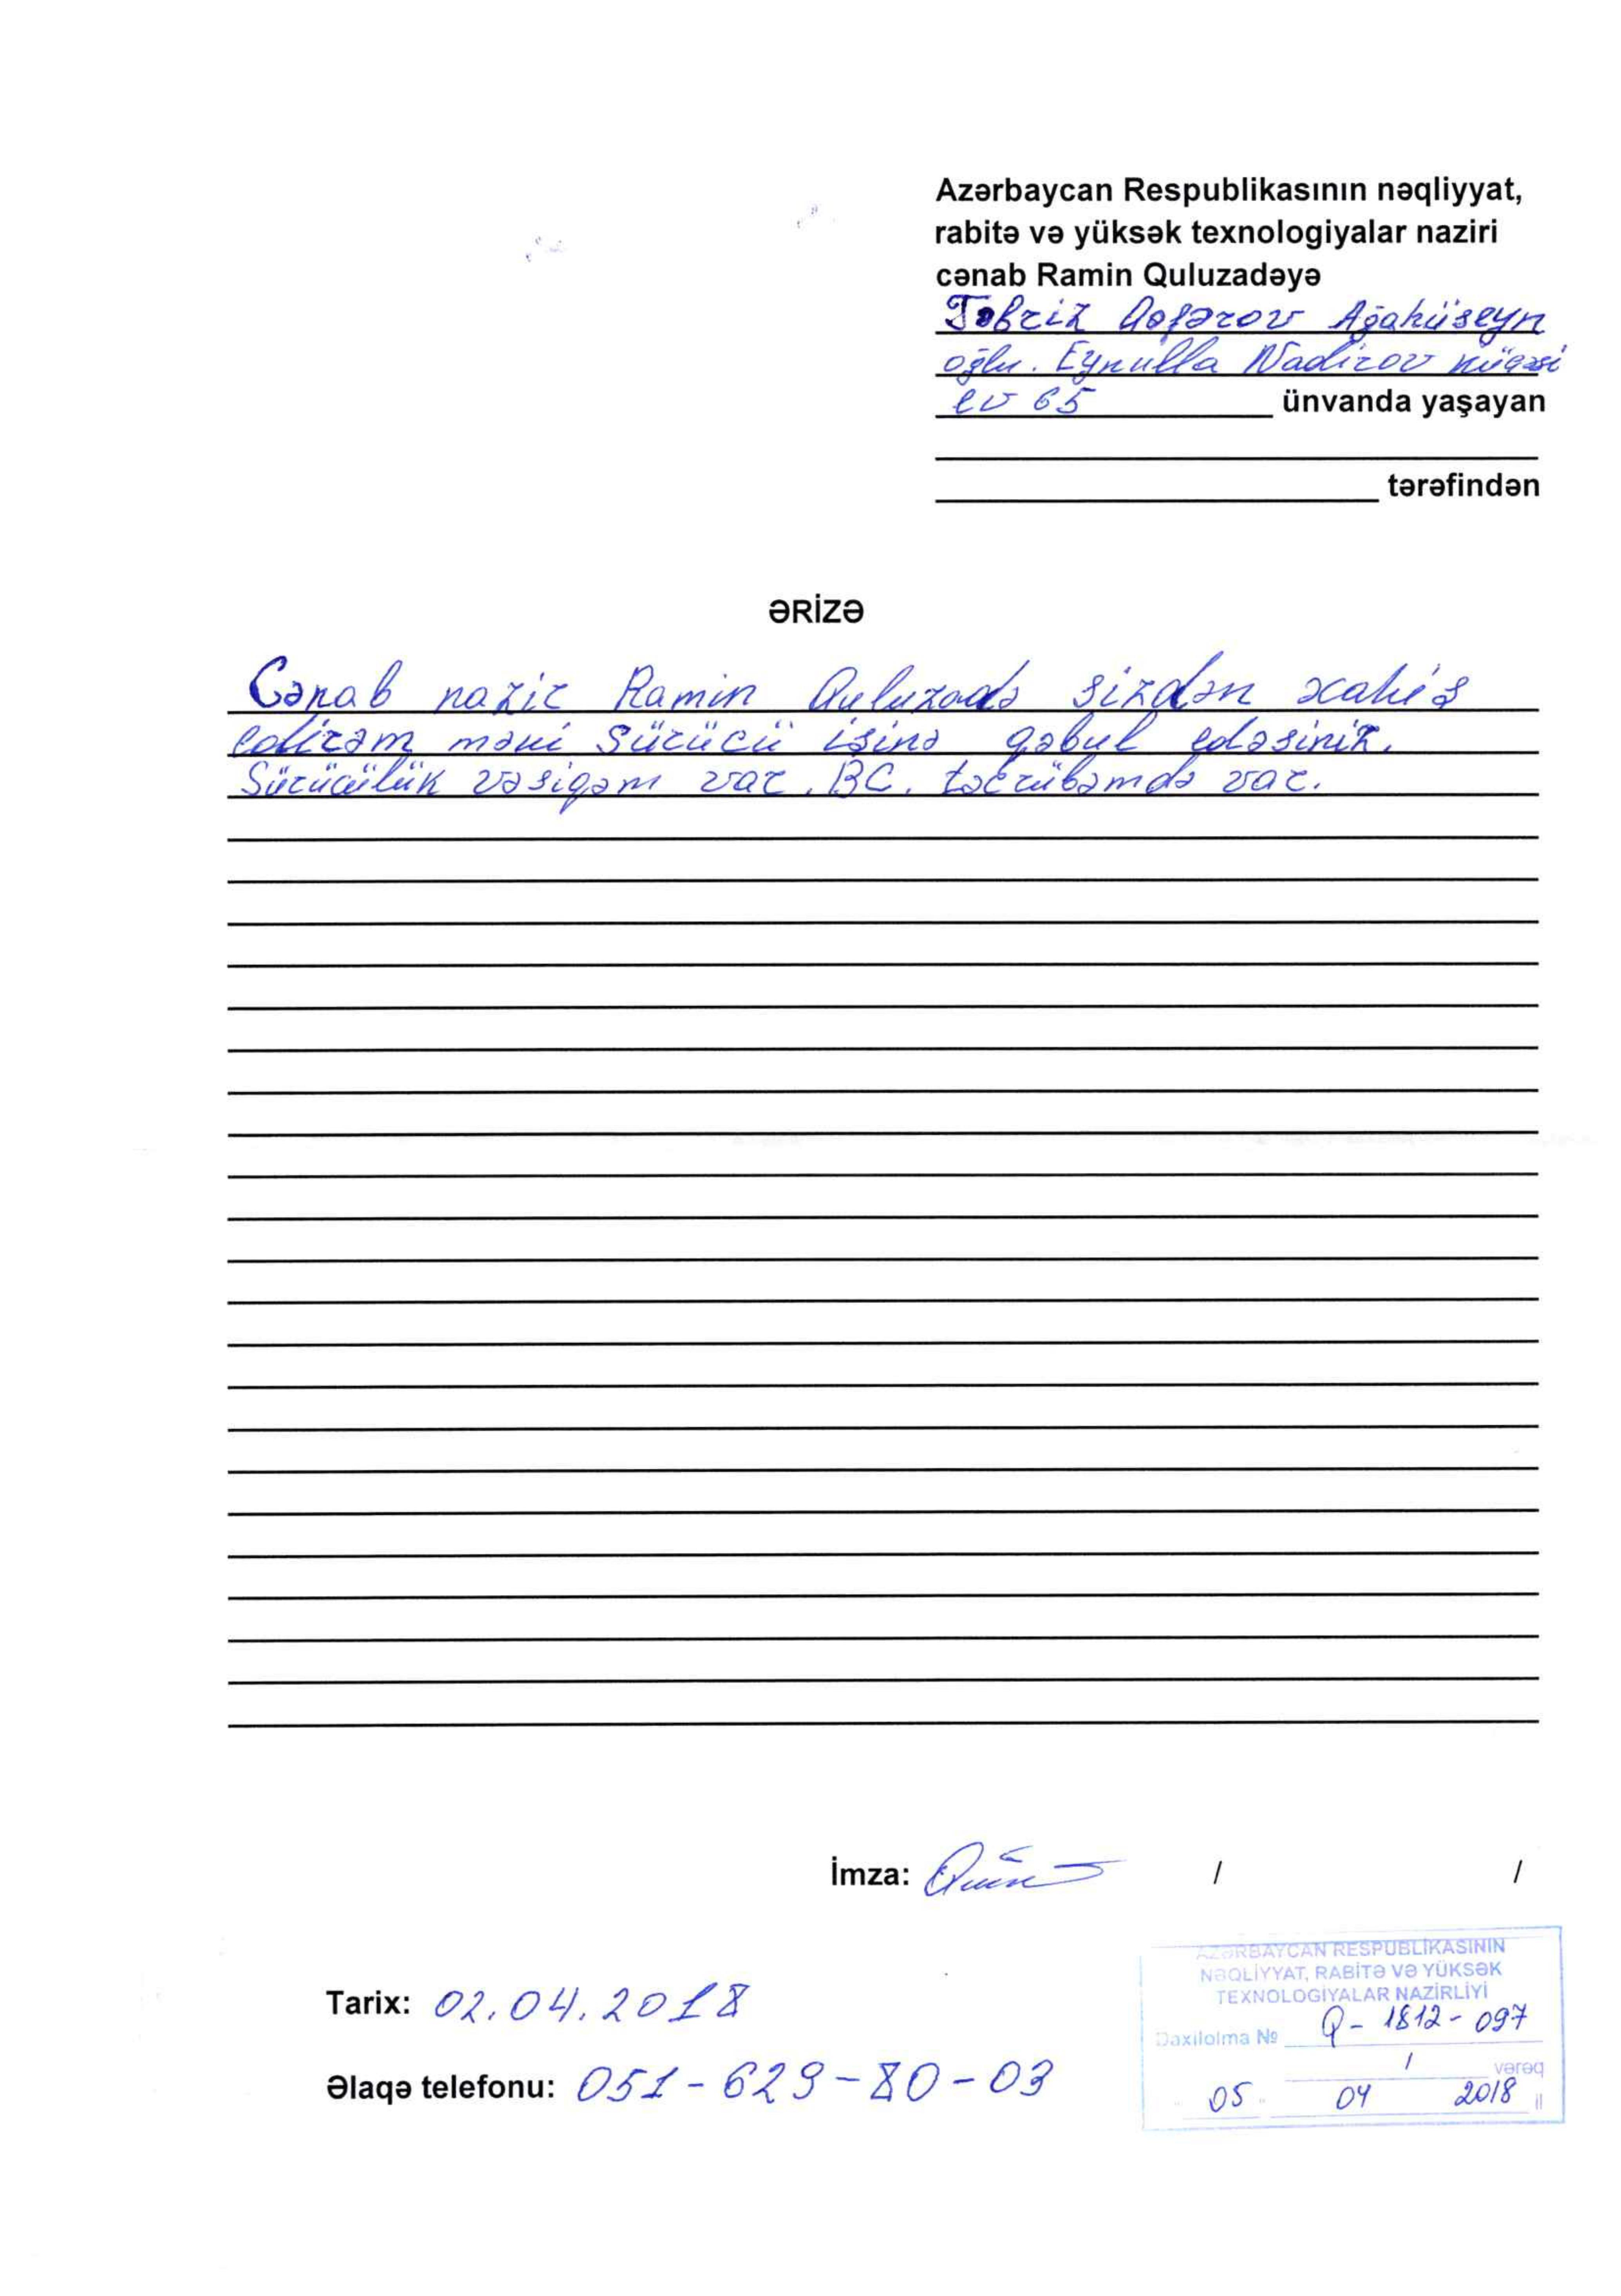 Azərbaycan Respublikasının nəqliyyat,
rabitə və yüksək texnologiyalar naziri
cənab Ramin Quluzadəyə
Təbriz Qafarov Ağahüseyn
oğlu. Eynulla Nadirov
ev 65 ünvanda yaşayan
tərəfindən
ƏRİZƏ
Cənab nazir Ramin Quluzadə sizdən xahiş
edirəm məni sürücü işinə qəbul edəsiniz.
Sürücülük vəsiqəm var. BC. təcrübəmdə var.
İmza: / /
AZƏRBAYCAN RESPUBLİKASININ
NƏQLİYYAT, RABİTƏ VƏ YÜKSƏK
TEXNOLOGİYALAR NAZİRLİYİ
Tarix: 02.04.2018
Daxilolma № Q- 1812- 097
1 vərəq
Əlaqə telefonu: 051-629-80-03
"05" 04 2018 il